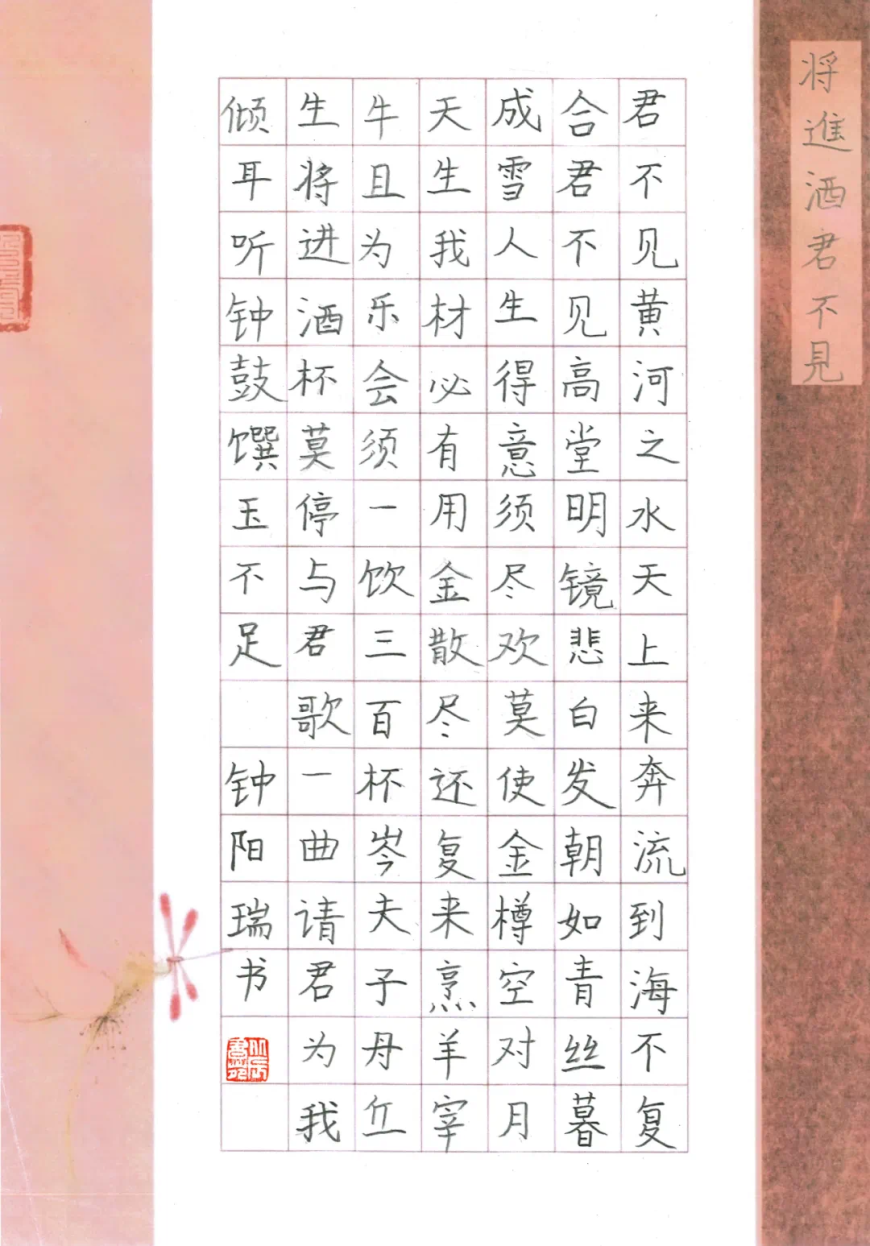 将進酒君不見
君不见黄河之水天上来奔流到海不复
合君不见高堂明镜悲白发朝如青丝暮
成雪人生得意须尽欢莫使金樽空对月
天生我材必有用金散尽还复来烹羊宰
牛且为乐会须一饮三百杯岑夫子丹丘
生将进酒杯莫停与君歌一曲请君为我
倾耳听钟鼓馔玉不足 钟阳瑞书